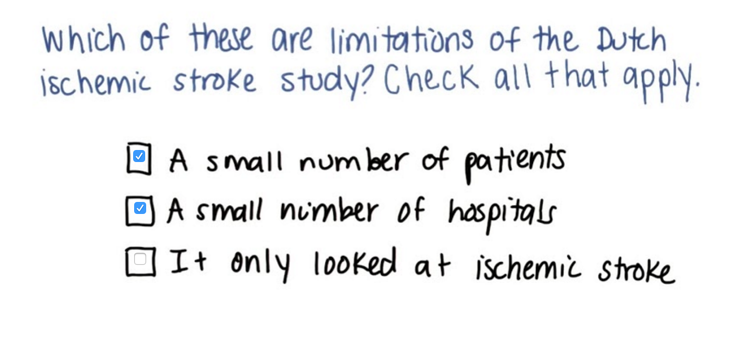 Which of these are limitations of the Dutch
ischemic stroke study? Check all that apply.
A small number of patients
A small number of hospitals
It only looked at ischemic stroke